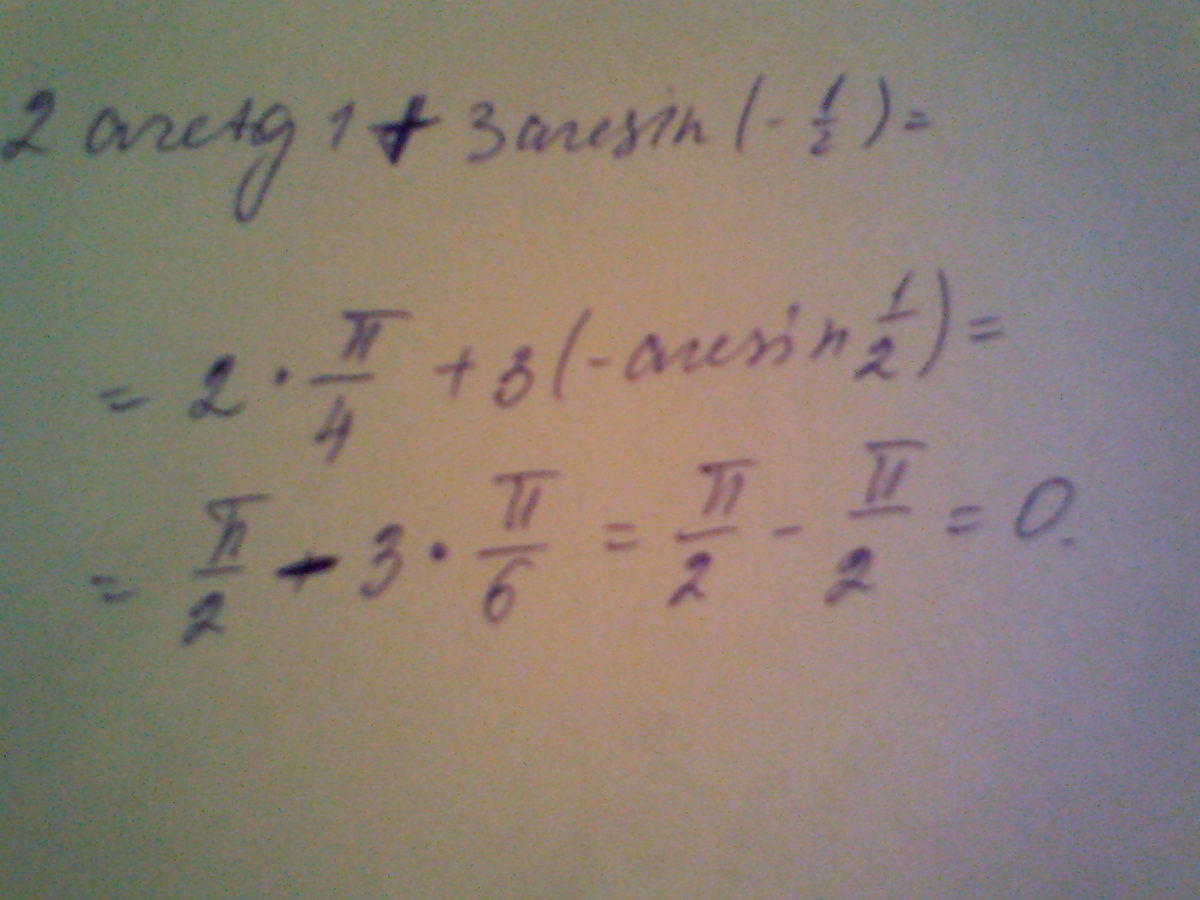 2 arctg 1 + 3 arcsin (-1/2) =
= 2 · π/4 + 3(-arcsin 1/2) =
= π/2 - 3 · π/6 = π/2 - π/2 = 0.